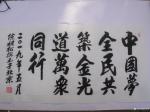 中國夢
全民共
築
道萬衆
同行
二〇一九年五月